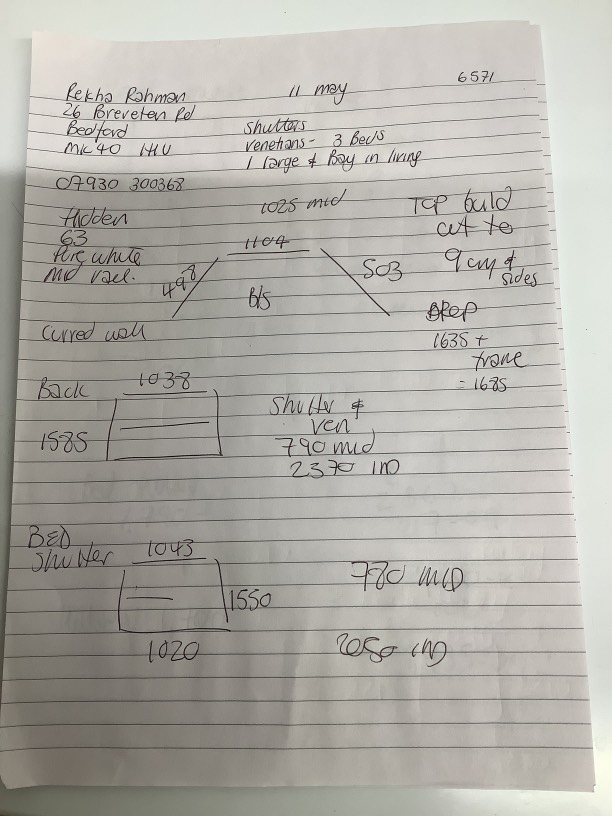 6571
Rekha Rahman
11 may
26 Breveten Rd
Bedford
MK40
Shutters
Venetians - 3 Beds
1 large & Bay in living
07930 300368
Hidden
63
Pure white
Mid rael.
1025 mid
1104
498
503
B/S
Top buld
cut to
9cm &
sides
DROP
1635 +
frame
= 1685
Curred wall
Back
1038
1585
Shutter &
ven
790 mid
2370 IND
BED
Shutter
1043
1550
1020
780 MID
2050 IND